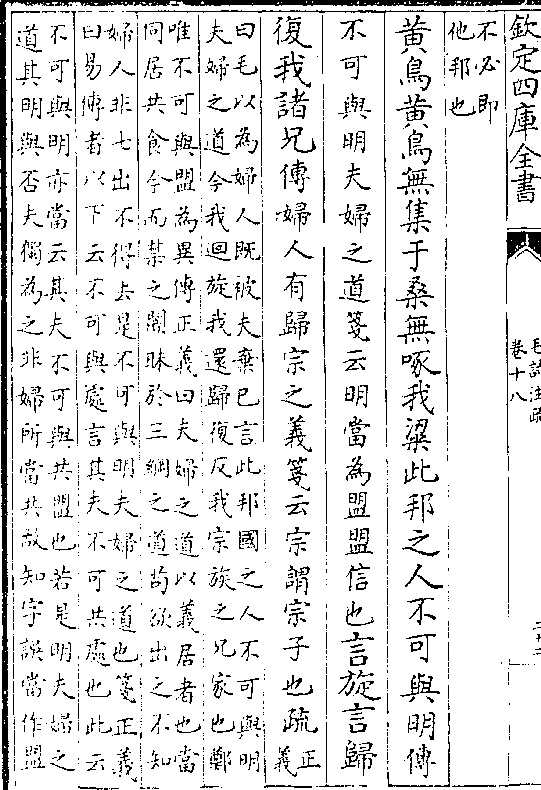 欽定四庫全書
毛詩注疏
卷十八
不必即
他邦也
黃鳥黃鳥無集于桑無啄我粱此邦之人不可與明傳
不可與明夫婦之道箋云明當為盟盟信也言旋言歸
復我諸兄傳婦人有歸宗之義箋云宗謂宗子也疏正
義
曰毛以為婦人既被夫棄已言此邦國之人不可與明
夫婦之道今我迴旋我還歸復反我宗族之兄家也鄭
唯不可與盟為異傳正義曰夫婦之道以義居者也當
同居共食今而棄之闇昧於三綱之道茍欲出之不知
婦人非七出不得去是不可與明夫婦之道也箋正義
曰易傳者以下云不可與處言其夫不可共處也此云
不可與明亦當云其夫不可與共盟也若是明夫婦之
道其明與否夫獨為之非婦所當共故知字誤當作盟